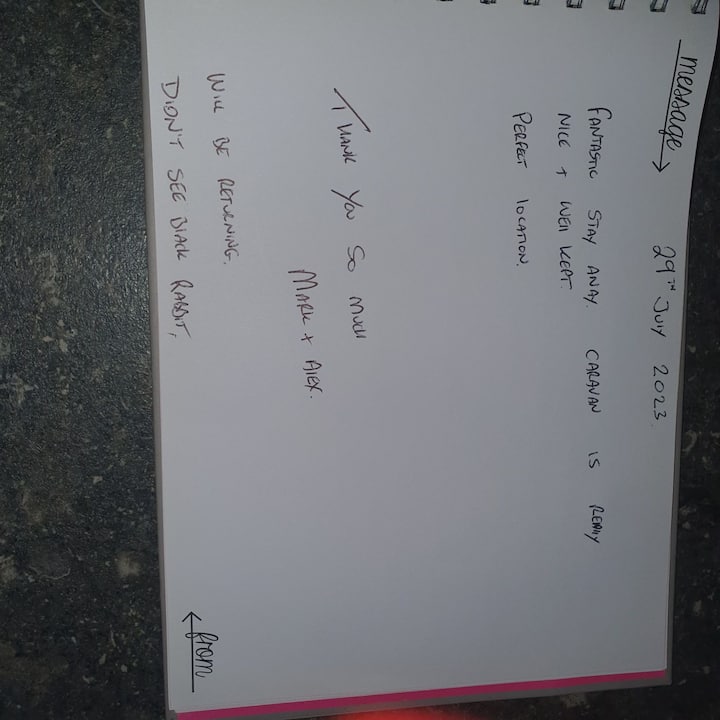 message
29TH JULY 2023.
FANTASTIC STAY AWAY. CARAVAN IS REALLY
NICE + WELL KEPT.
PERFECT LOCATION.
THANK YOU SO MUCH
MARK + ALEX.
WILL BE RETURNING.
DIDN'T SEE BLACK RABBIT,
from